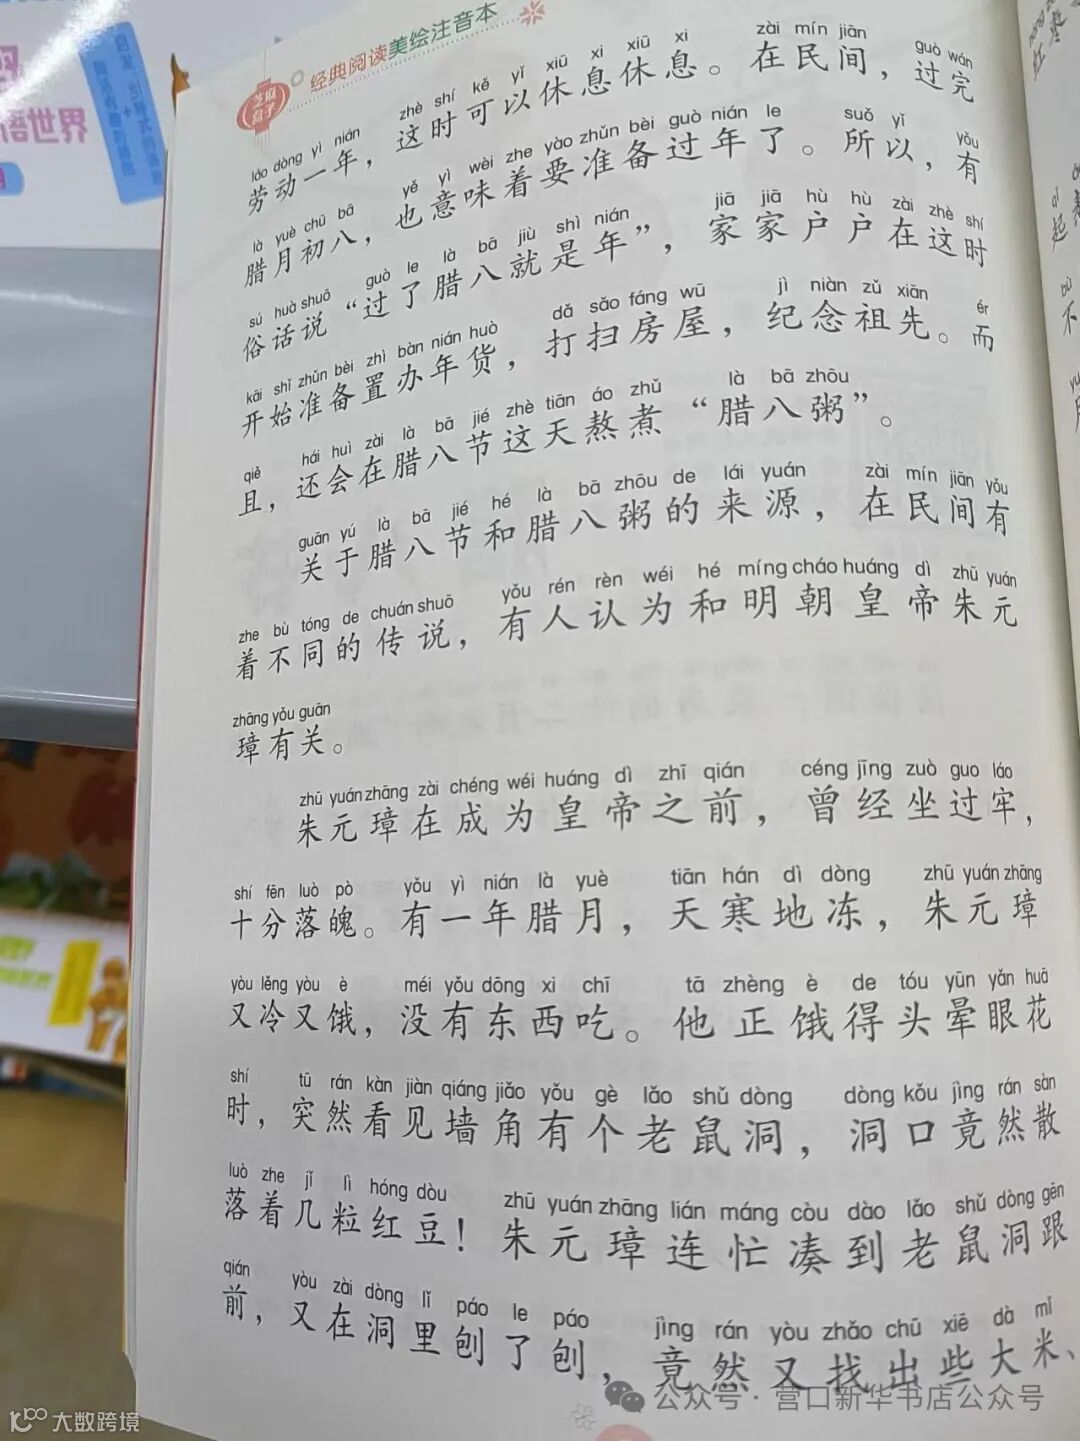 经典阅读美绘注音本
芝麻
盒子
语世界
láo dòng yì nián zhè shí kě yǐ xiū xi xiū xi zài mín jiān guò wán
劳动一年，这时可以休息休息。在民间，过完
là yuè chū bā yě yì wèi zhe yào zhǔn bèi guò nián le suǒ yǐ yǒu
腊月初八，也意味着要准备过年了。所以，有
sú huà shuō guò le là bā jiù shì nián jiā jiā hù hù zài zhè shí
俗话说“过了腊八就是年”，家家户户在这时
kāi shǐ zhǔn bèi zhì bàn nián huò dǎ sǎo fáng wū jì niàn zǔ xiān ér
开始准备置办年货，打扫房屋，纪念祖先。而
qiě hái huì zài là bā jié zhè tiān áo zhǔ là bā zhōu
且，还会在腊八节这天熬煮“腊八粥”。
guān yú là bā jié hé là bā zhōu de lái yuán zài mín jiān yǒu
关于腊八节和腊八粥的来源，在民间有
zhe bù tóng de chuán shuō yǒu rén rèn wéi hé míng cháo huáng dì zhū yuán
着不同的传说，有人认为和明朝皇帝朱元
zhāng yǒu guān
璋有关。
zhū yuán zhāng zài chéng wéi huáng dì zhī qián céng jīng zuò guo láo
朱元璋在成为皇帝之前，曾经坐过牢，
shí fēn luò pò yǒu yì nián là yuè tiān hán dì dòng zhū yuán zhāng
十分落魄。有一年腊月，天寒地冻，朱元璋
yòu lěng yòu è méi yǒu dōng xi chī tā zhèng è de tóu yūn yǎn huā
又冷又饿，没有东西吃。他正饿得头晕眼花
shí tū rán kàn jiàn qiáng jiǎo yǒu gè lǎo shǔ dòng dòng kǒu jìng rán sàn
时，突然看见墙角有个老鼠洞，洞口竟然散
luò zhe jǐ lì hóng dòu zhū yuán zhāng lián máng còu dào lǎo shǔ dòng gēn
落着几粒红豆！朱元璋连忙凑到老鼠洞跟
qián yòu zài dòng lǐ páo le páo jìng rán yòu zhǎo chū xiē dà mǐ
前，又在洞里刨了刨，竟然又找出些大米、
公众号·营口新华书店公众号
大数跨境